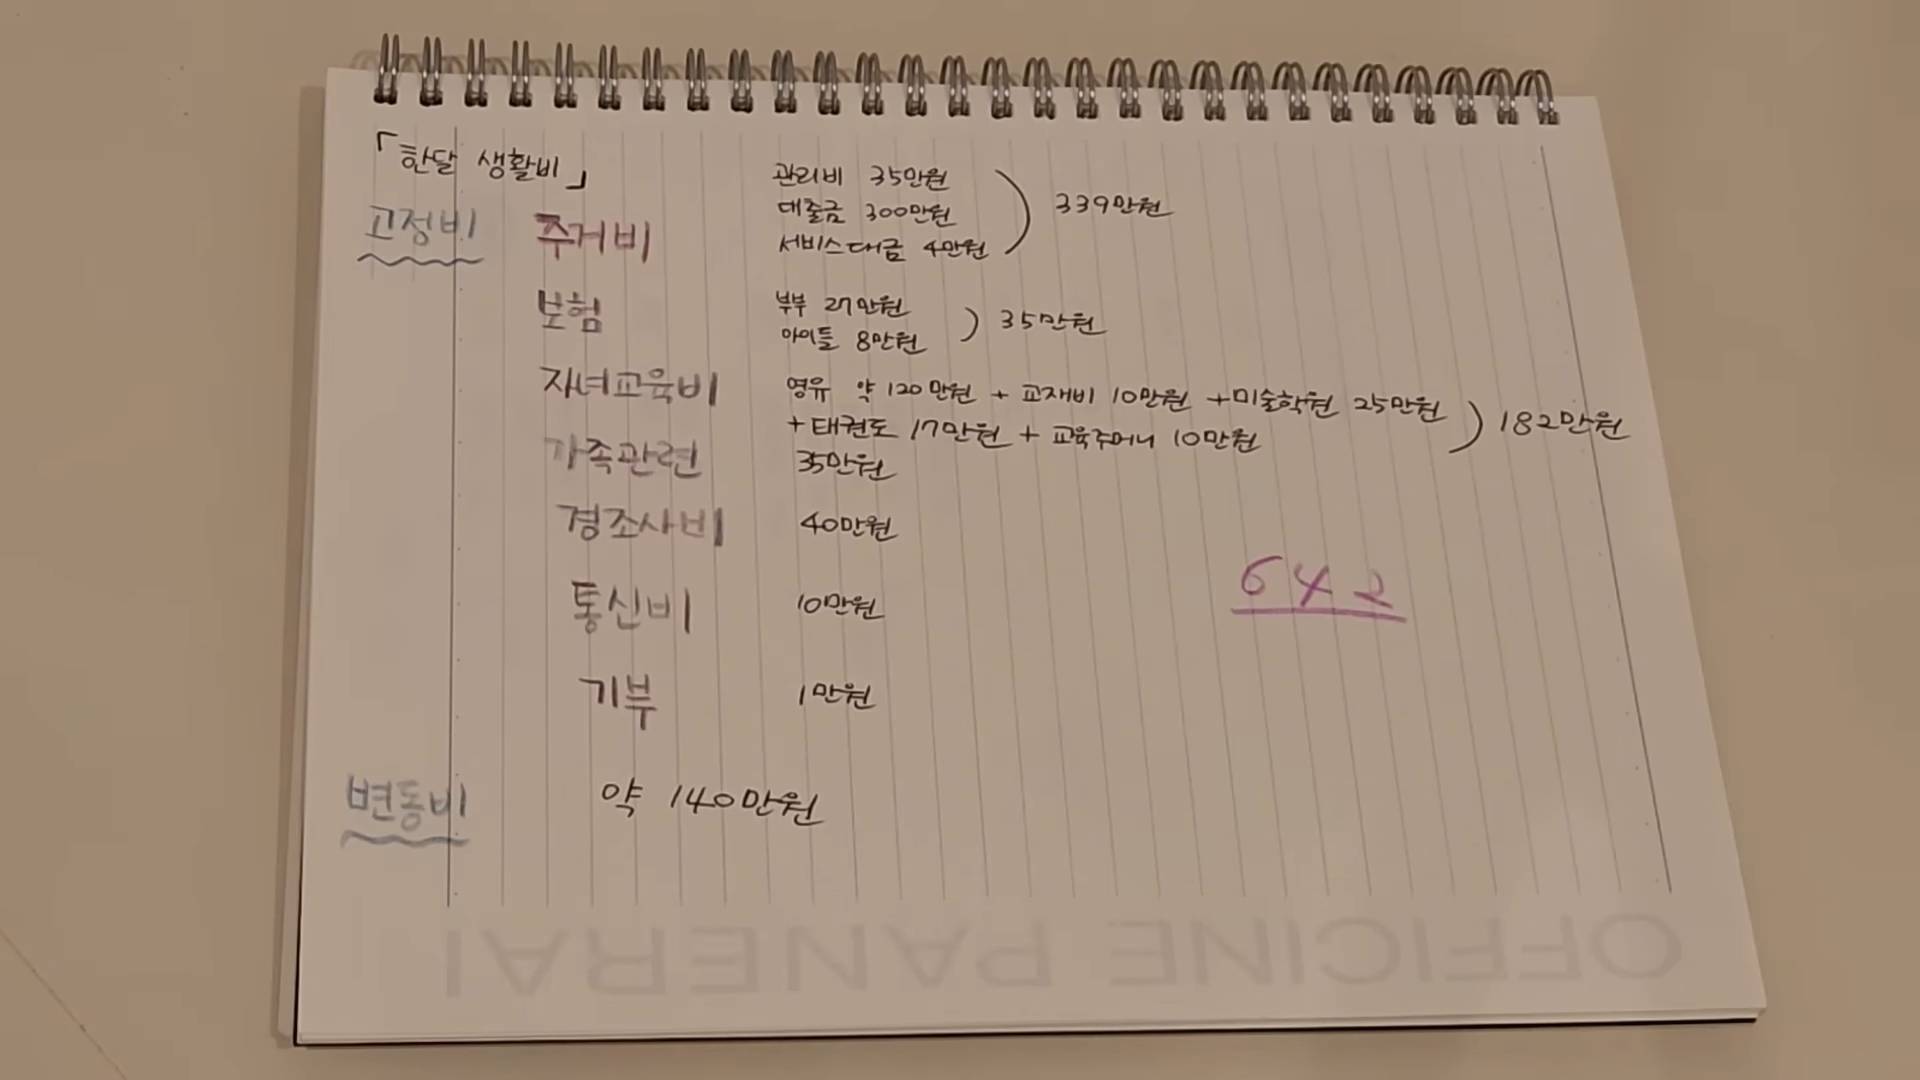 「한달 생활비」
고정비
주거비
관리비 35만원
대출금 300만원
서비스대금 4만원
) 339만원
보험
부부 27만원
아이들 8만원
) 35만원
자녀교육비
영유 약 120만원 + 교재비 10만원 +미술학원 25만원
+태권도 17만원 + 교육주머니 10만원
) 182만원
가족관련 35만원
경조사비 40만원
통신비 10만원
기부 1만원
642
변동비 약 140만원
OFFICINE PANERAI